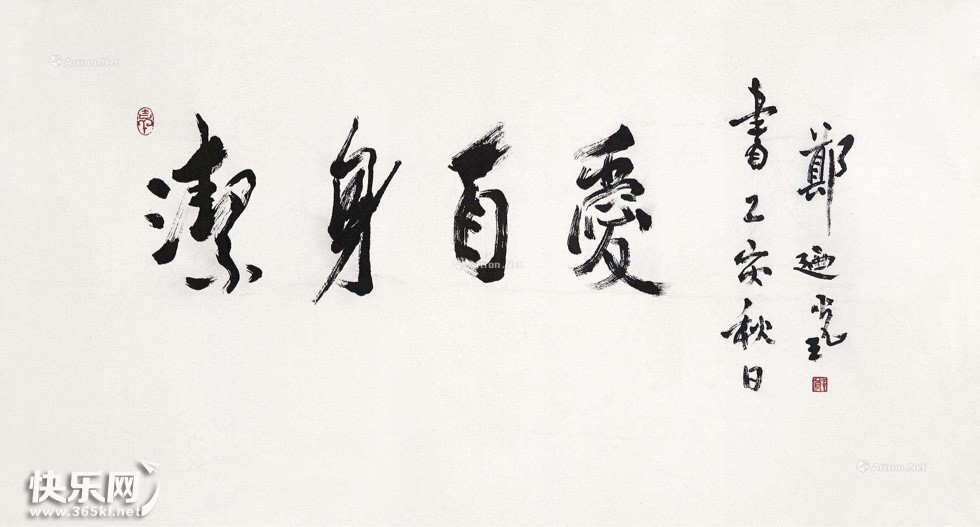 潔身自愛
書乙亥秋日
鄭迺珖
Artron.Net
Artron.Net
Artron.Net
快乐网
www.365kl.net